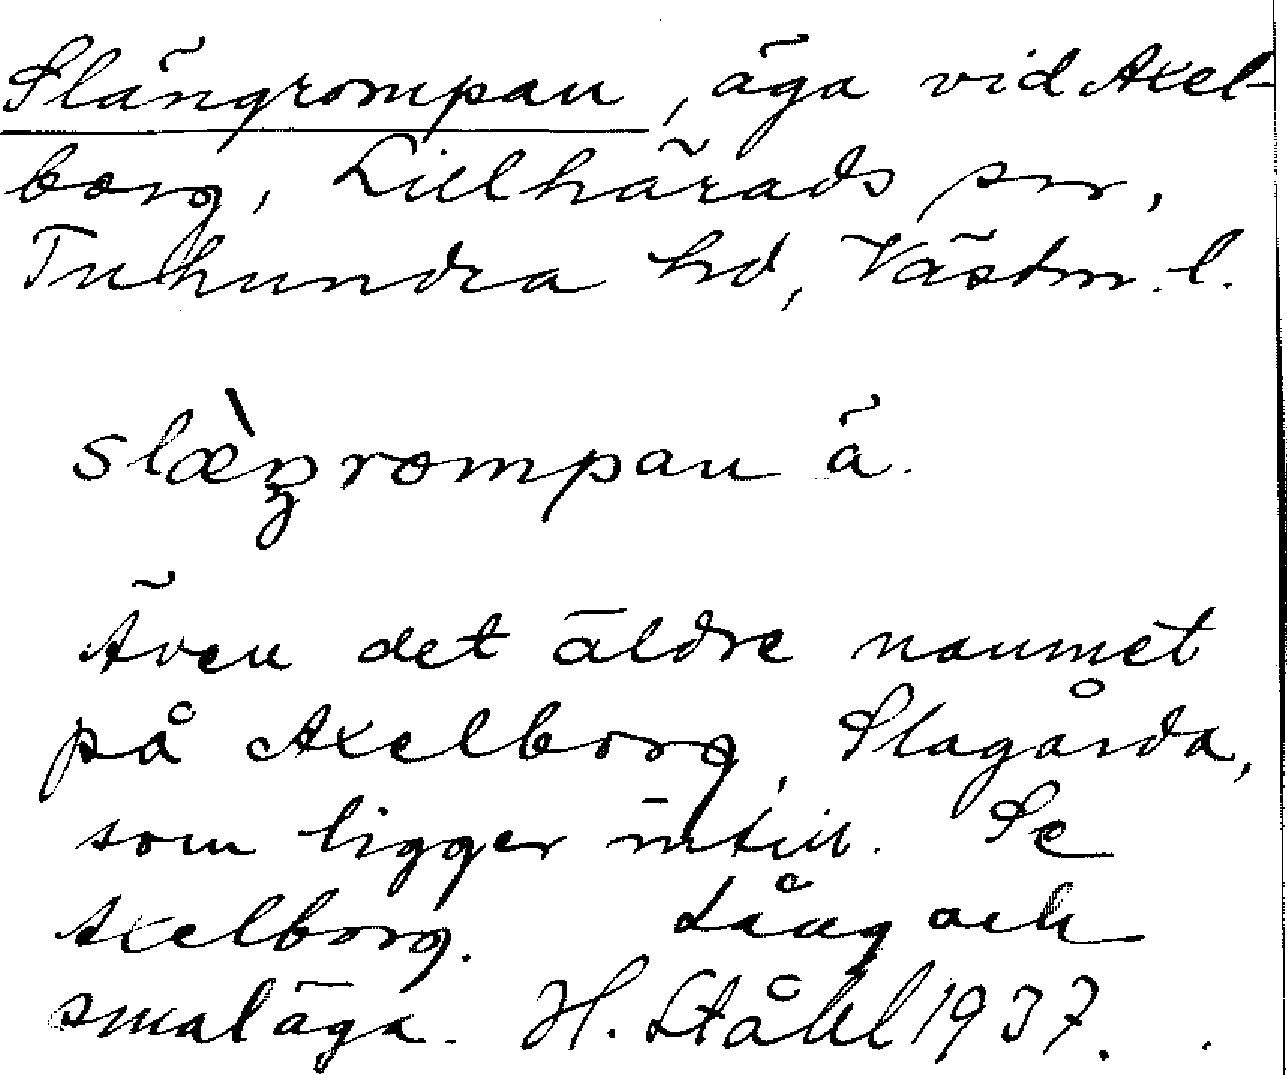 Slängrompan, äga vid Axel-
borg, Lillhärads sn,
Tuhundra hd, Västm. l.
slæ̀ŋrompan ä.
Även det äldre namnet
på Axelborg, Slagårda,
som ligger intill. Se
Axelborg. Lång och
smal äga. H. Ståhl 1937.